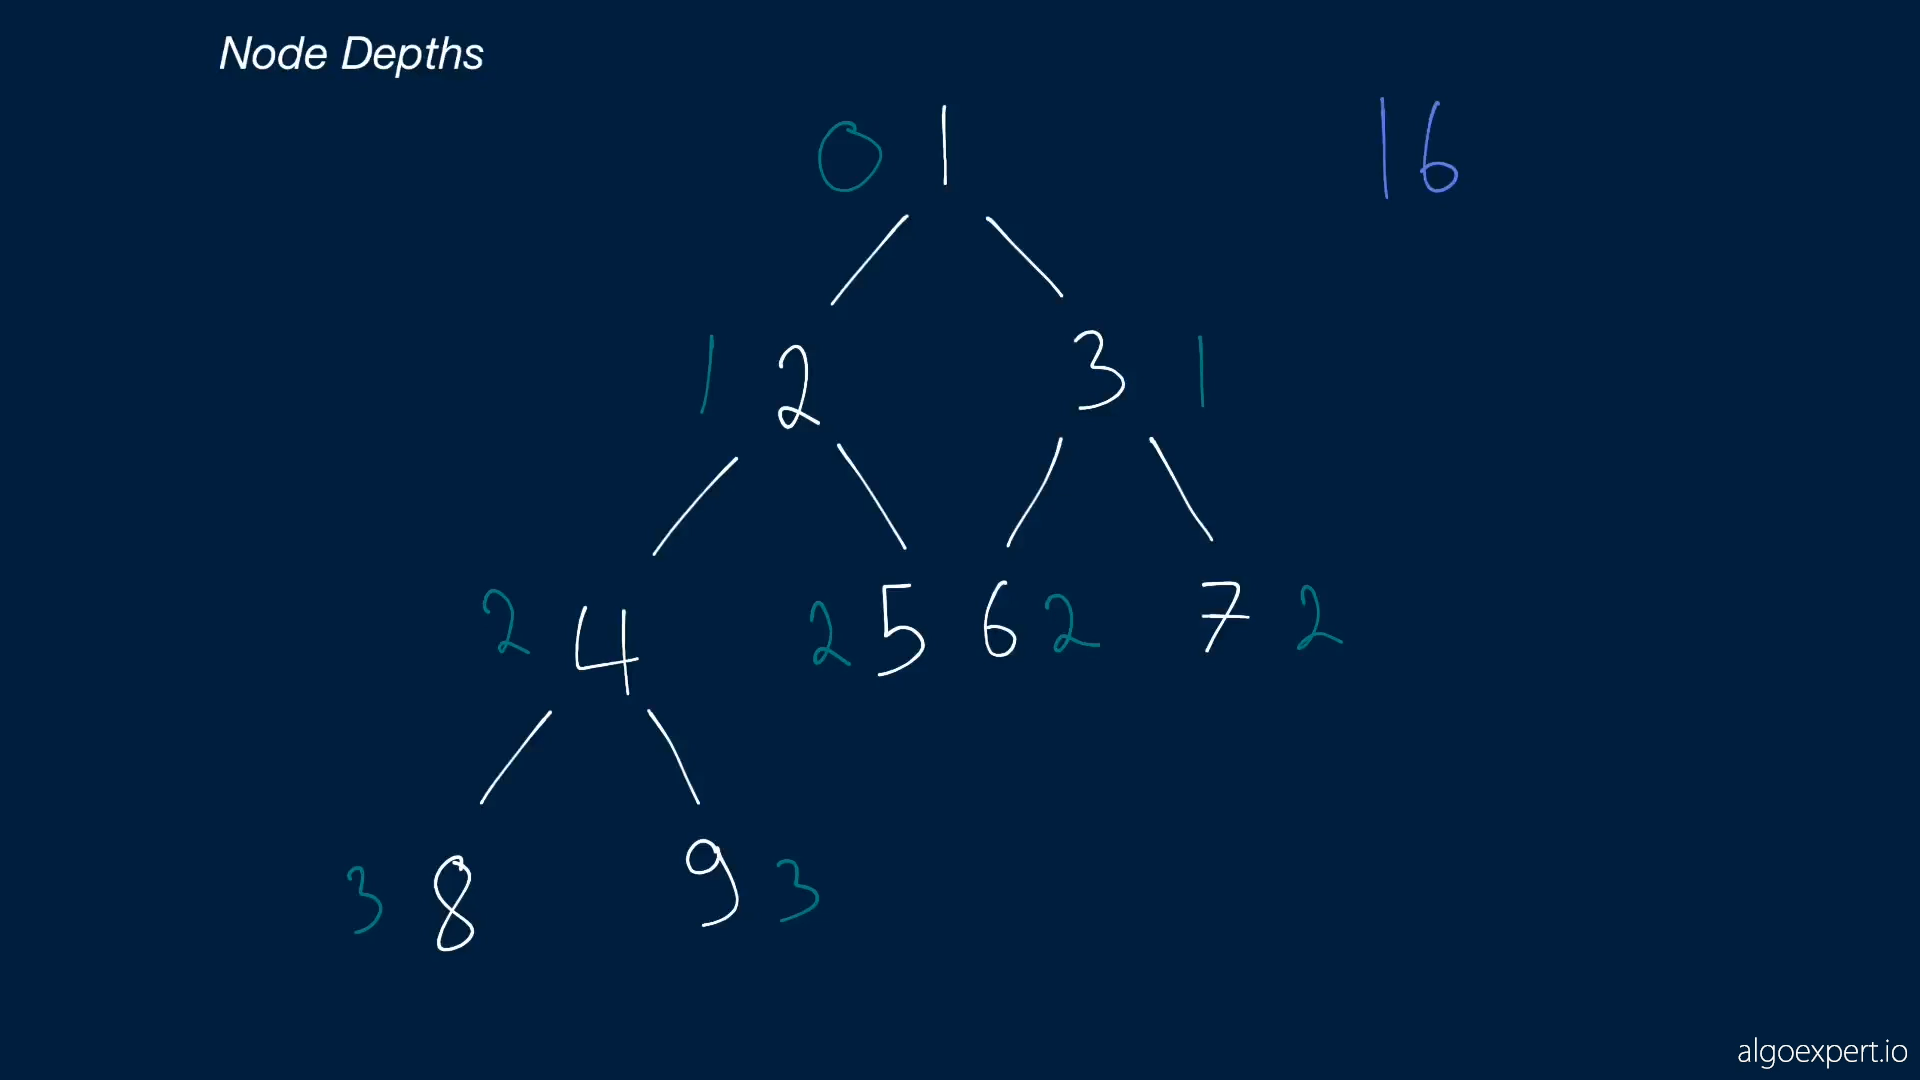 Node Depths
0 1 16
1 2 3 1
2 4 2 5 6 2 7 2
3 8 9 3
algoexpert.io